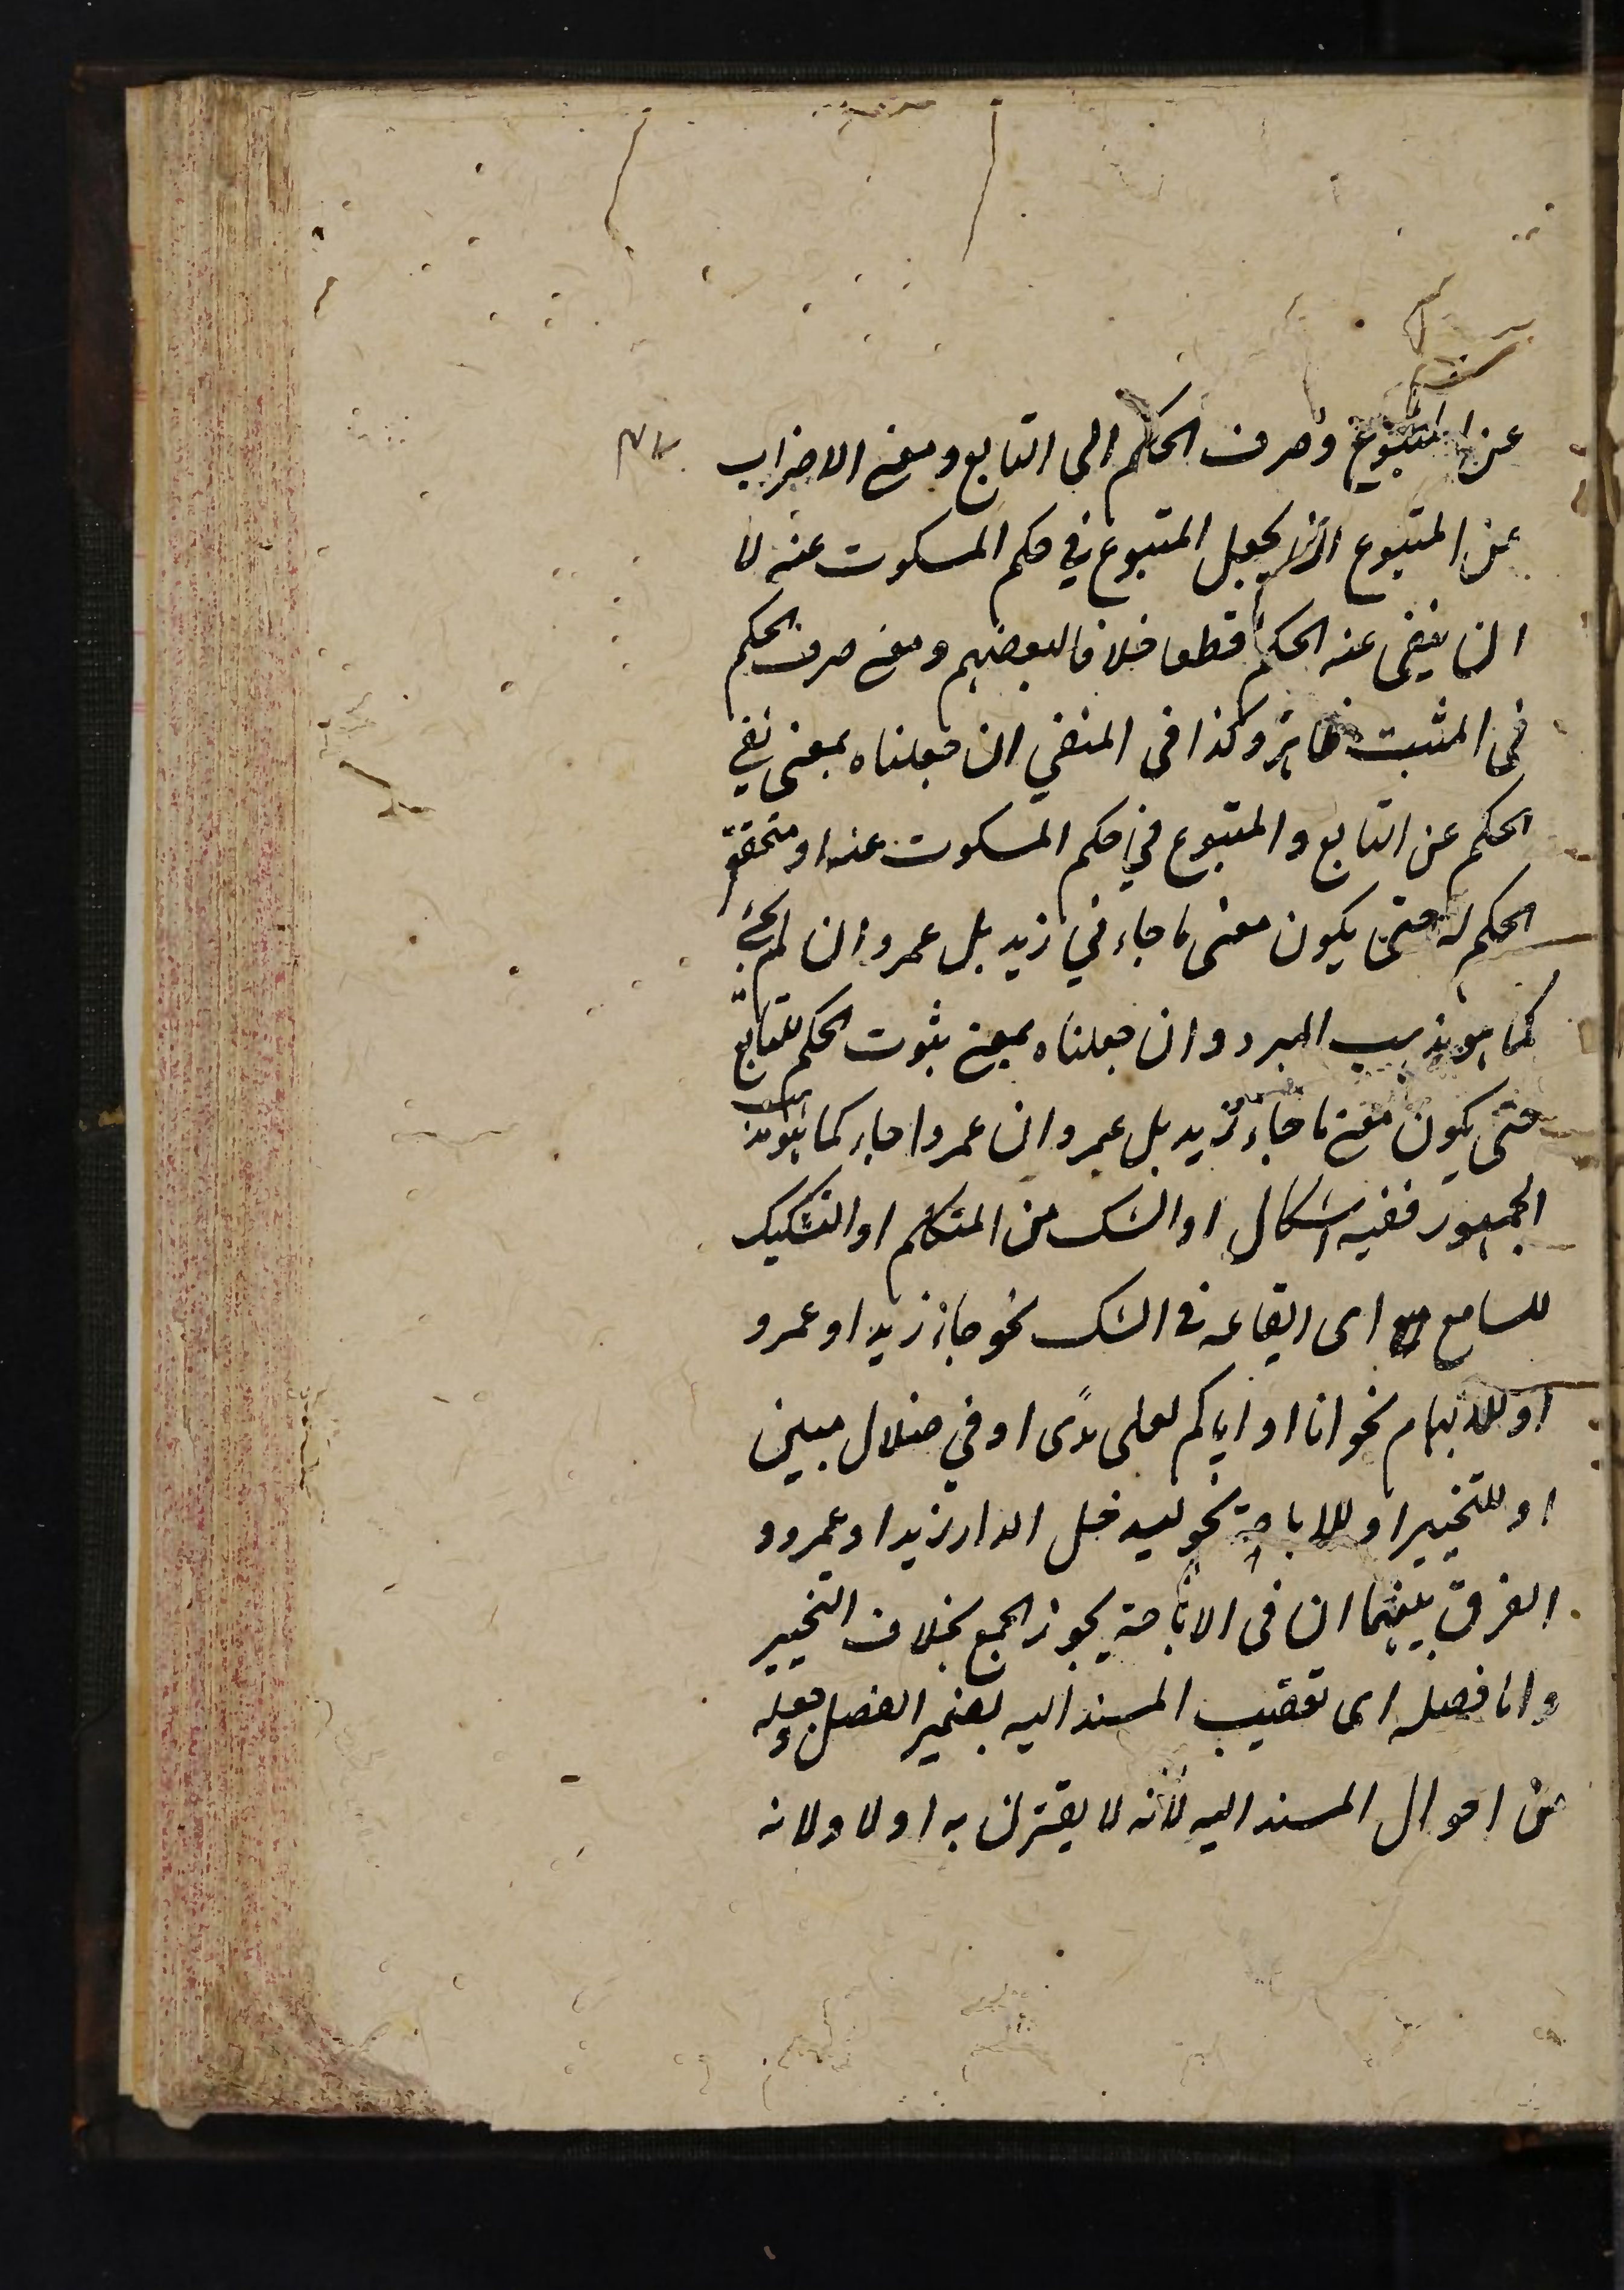 عن المتبوع وصرف الحكم الى التابع ومعنى الاضراب
عن المتبوع ان يجعل المتبوع في حكم المسكوت عنه لا
ان ينفى عنه الحكم قطعا خلافا لبعضهم ومعنى صرف الحكم
فى المثبت ظاهر وكذا فى المنفي ان جعلناه بمعنى نفي
الحكم عن التابع والمتبوع في حكم المسكوت عنه او متحقق
الحكم له حتى يكون معنى ما جاءني زيد بل عمرو ان لم يجئ
كما هو مذهب المبرد وان جعلناه بمعنى ثبوت الحكم للتابع
حتى يكون معنى ما جاء زيد بل عمرو ان عمروا جاء كما هو مذهب
الجمهور ففيه اشكال او الشك من المتكلم او التشكيك
للسامع اى ايقاعه فى الشك نحو جاء زيد او عمرو
او للابهام نحو انا او اياكم لعلى هدًى او في ضلال مبين
او للتخيير او للاباحة نحو ليدخل الدار زيد او عمرو و
الفرق بينهما ان فى الاباحة يجوز الجمع بخلاف التخيير
واما فصله اى تعقيب المسند اليه بضمير الفصل وجعله
من احوال المسند اليه لأنه لا يقترن به اولا ولانه